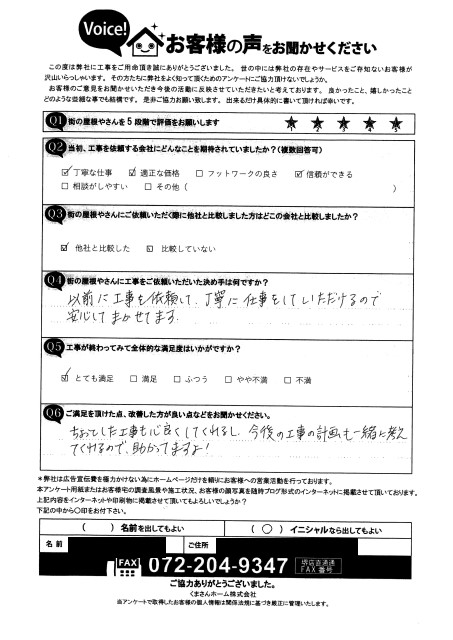 Voice!
お客様の声をお聞かせください
この度は弊社に工事をご用命頂き誠にありがとうございました。 世の中には弊社の存在やサービスをご存知ないお客様が
沢山いらっしゃいます。 その方たちに弊社をよく知って頂くためのアンケートにご協力頂けないでしょうか。
お客様のご意見をお聞かせいただき今後の活動に反映させていただきたいと考えております。 良かったこと、嬉しかったこと
どのような些細な事でも結構です。 是非ご協力お願い致します。 出来るだけ具体的に書いて頂ければ幸いです。
Q1 街の屋根やさんを5段階で評価をお願いします
★1 ★2 ★3 ★4 ★5
Q2 当初、工事を依頼する会社にどんなことを期待されていましたか?(複数回答可)
☑丁寧な仕事 ☑適正な価格 □フットワークの良さ ☑信頼ができる
□相談がしやすい □その他( )
Q3 街の屋根やさんにご依頼いただく際に他社と比較しました方はどこの会社と比較しましたか?
☑ 他社と比較した □ 比較していない
Q4 街の屋根やさんに工事をご依頼いただいた決め手は何ですか?
以前に工事を依頼して、丁寧に仕事をしていただけるので
安心してまかせてます
Q5 工事が終わってみて全体的な満足度はいかがですか?
☑とても満足 □満足 □ふつう □やや不満 □不満
Q6 ご満足を頂けた点、改善した方が良い点などをお聞かせください。
ちょっとした工事も心良くしてくれるし、今後の工事の計画も一緒に考え
てくれるので、助かってますよ!
*弊社は広告宣伝費を極力かけない為にホームページだけを頼りにお客様への営業活動を行っております。
本アンケート用紙またはお客様宅の調査風景や施工状況、お客様の顔写真を随時ブログ形式のインターネットに掲載させて頂いております。
上記内容をインターネットや印刷物に掲載させて頂いてもよろしいでしょうか?
下記の中から○印をお付下さい。
( )名前を出してもよい (○)イニシャルなら出してもよい
名前 ご住所
FAX 072-204-9347 堺店直通 FAX番号
ご協力ありがとうございました。
くまさんホーム株式会社
当アンケートで取得したお客様の個人情報は関係法規に基づき厳正に管理いたします。